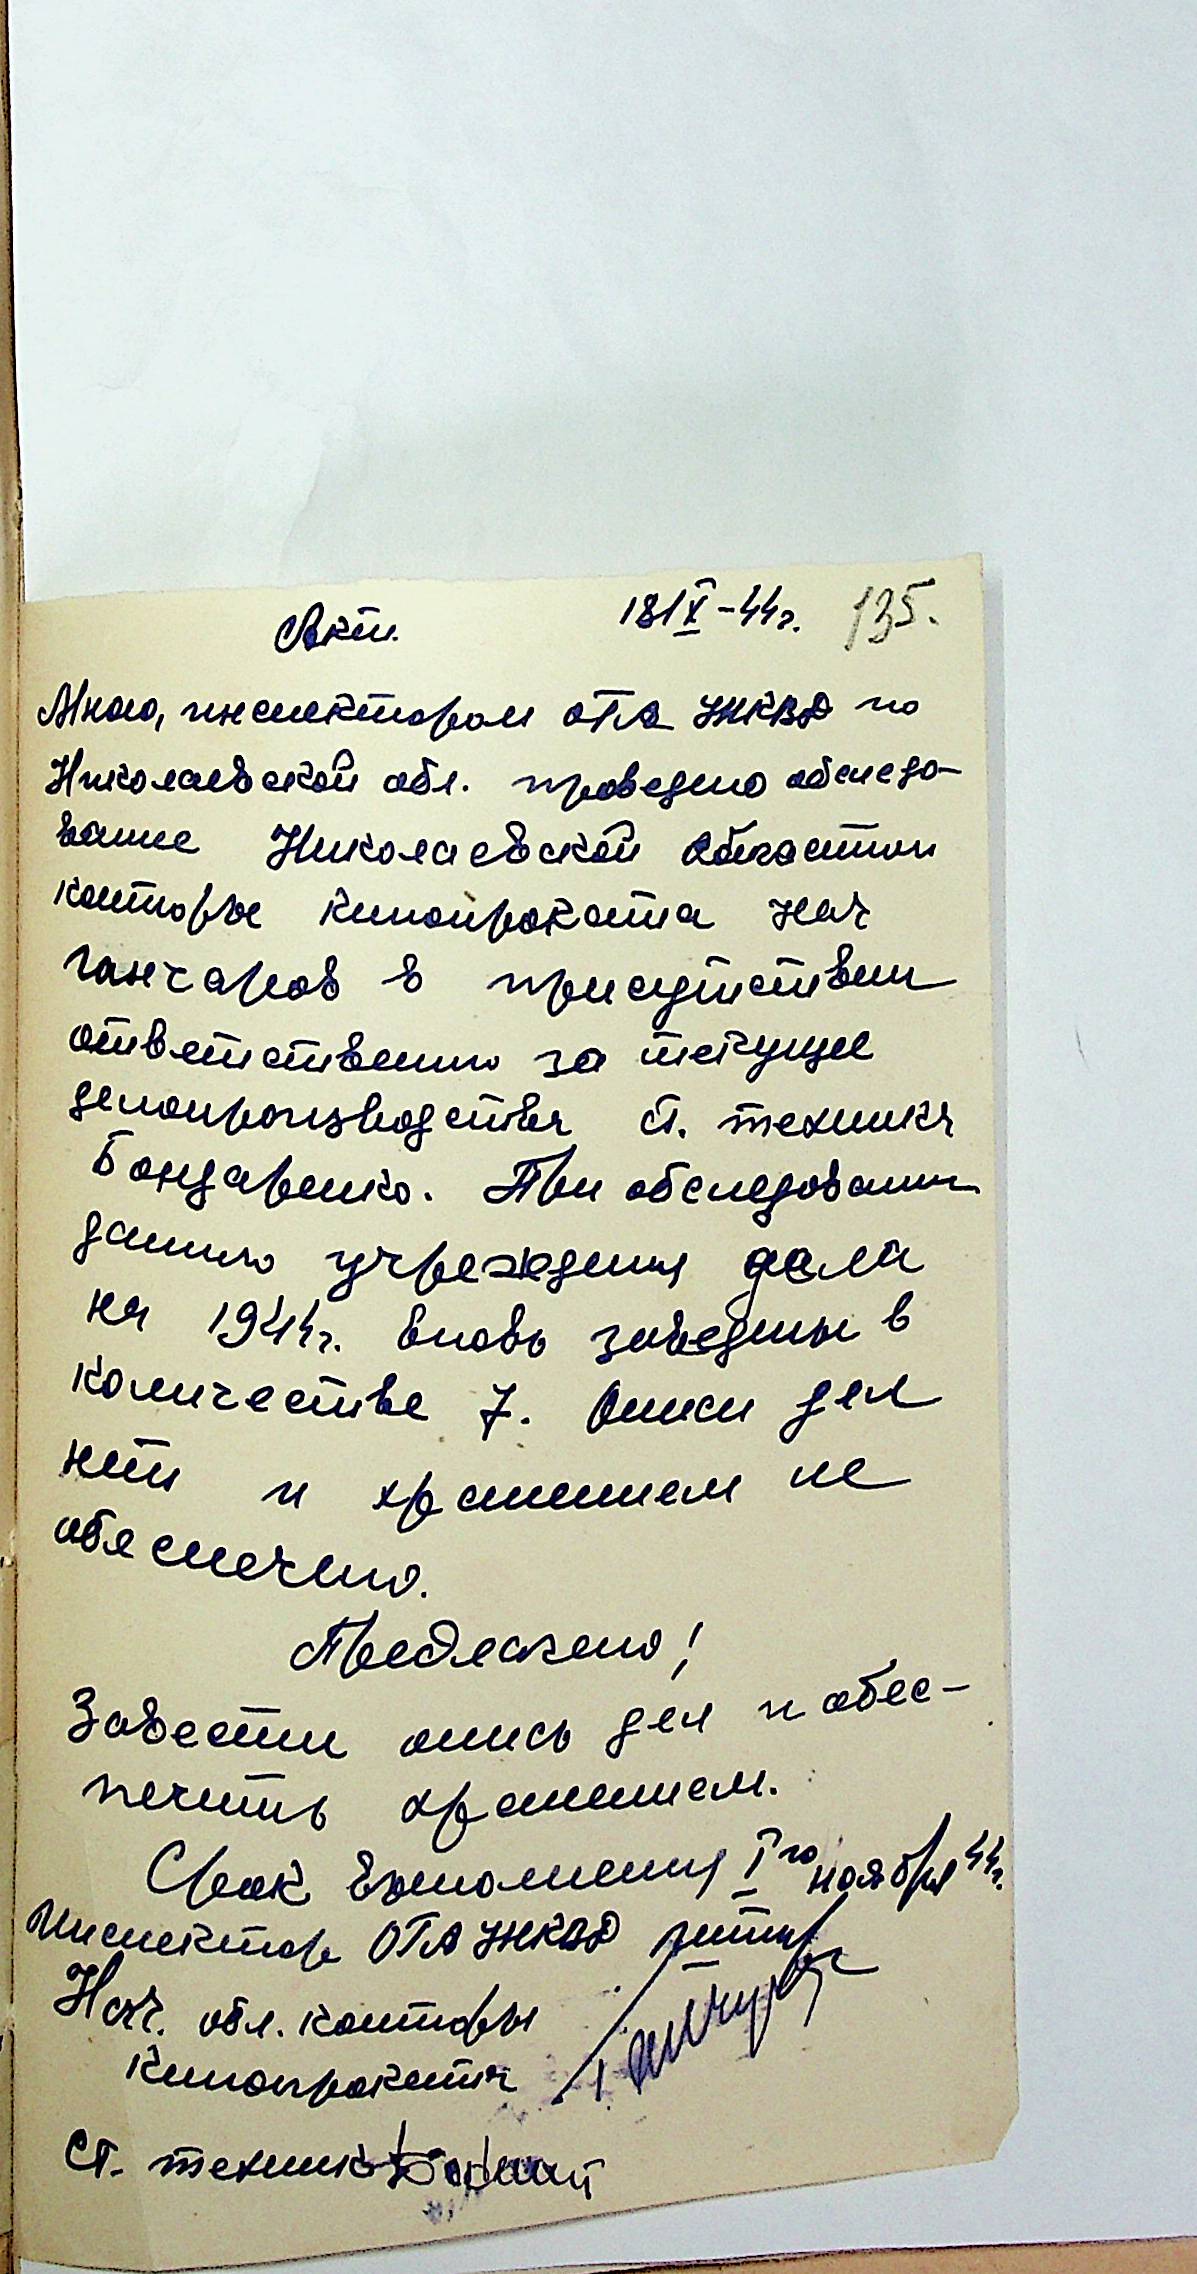 Акт. 18/X-44г. 135.
Мною, инспектором ОГА УНКВД по
Николаевской обл. проведено обследо-
вание Николаевской областной
конторы кинопроката нач
Ганчаров в присутствии
ответственно за текущее
делопроизводства ст. техника
Бондаренко. При обследовании
данного учреждения дела
на 1944г. вновь заведены в
количестве 7. Описи дел
нет и хранением не
обеспечено.
Предложено!
Завести опись дел и обес-
печить хранением.
Срок выполнения I го ноября 44г.
Инспектор ОГА УНКВД
Нач. обл. конторы
кинопроката
Ст. техник